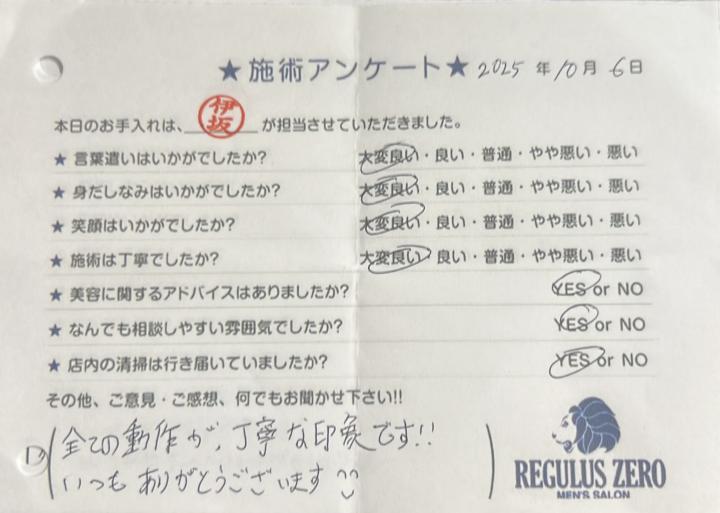 ★施術アンケート★ 2025年10月6日
本日のお手入れは、伊坂が担当させていただきました。
★ 言葉遣いはいかがでしたか? 大変良い・良い・普通・やや悪い・悪い
★ 身だしなみはいかがでしたか? 大変良い・良い・普通・やや悪い・悪い
★ 笑顔はいかがでしたか? 大変良い・良い・普通・やや悪い・悪い
★ 施術は丁寧でしたか? 大変良い・良い・普通・やや悪い・悪い
★ 美容に関するアドバイスはありましたか? YES or NO
★ なんでも相談しやすい雰囲気でしたか? YES or NO
★ 店内の清掃は行き届いていましたか? YES or NO
その他、ご意見・ご感想、何でもお聞かせ下さい!!
全ての動作が、丁寧な印象です!!
いつもありがとうございます
REGULUS ZERO
MEN'S SALON